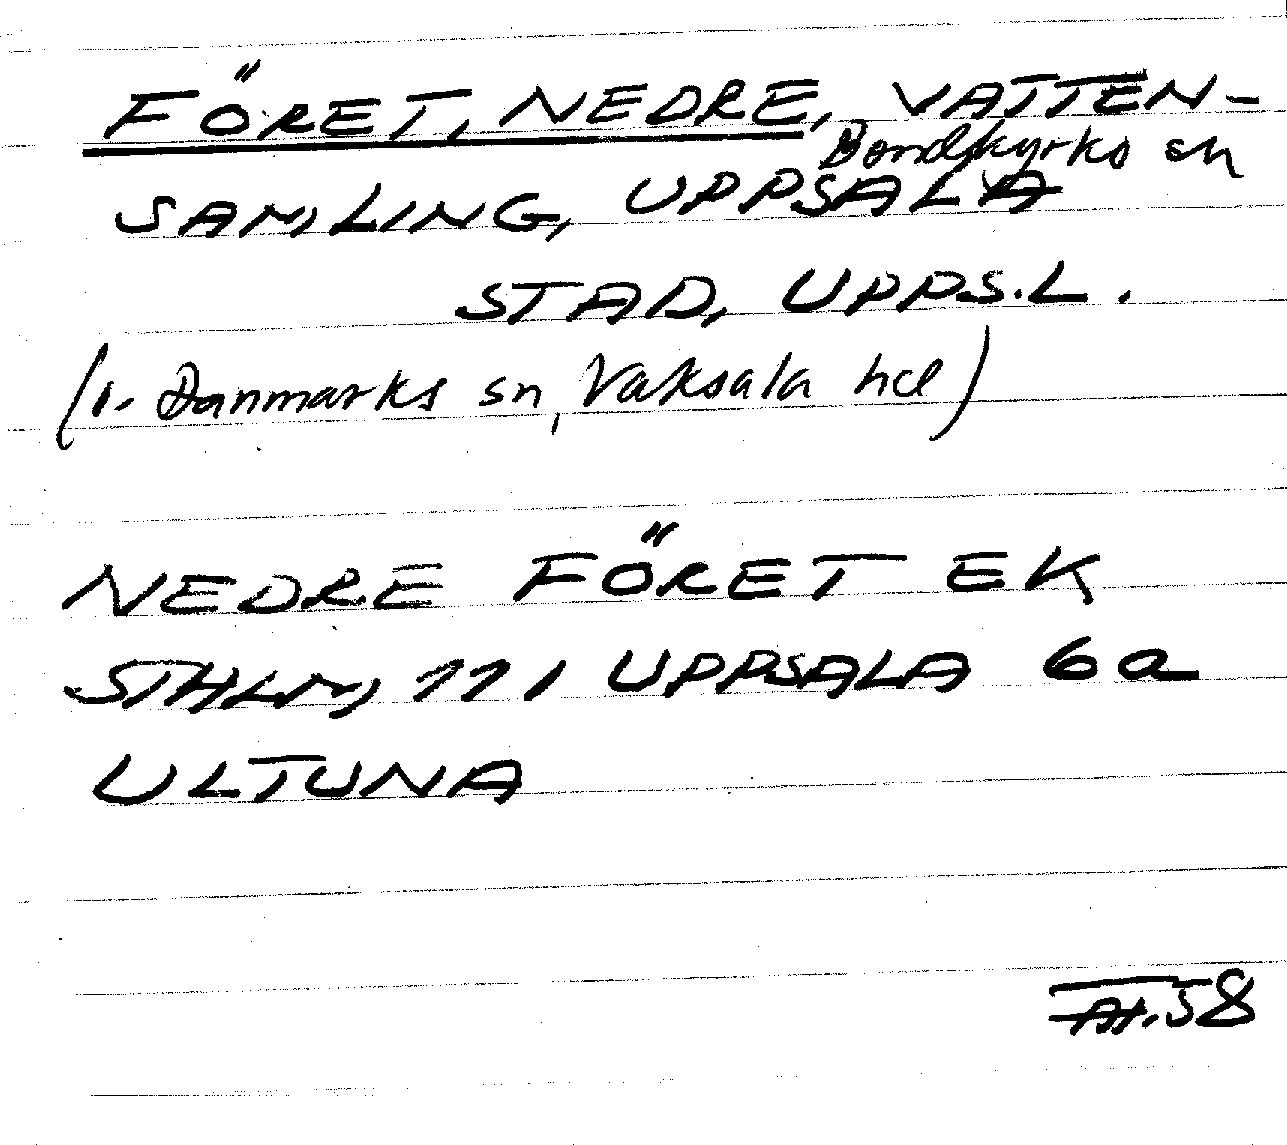 FÖRET, NEDRE, VATTEN-
Bondkyrko sn
SAMLING, UPPSALA
STAD, UPPS.L.
(i. Danmarks sn, Vaksala hd)
NEDRE FÖRET EK
STHLM 111 UPPSALA 6a
ULTUNA
58